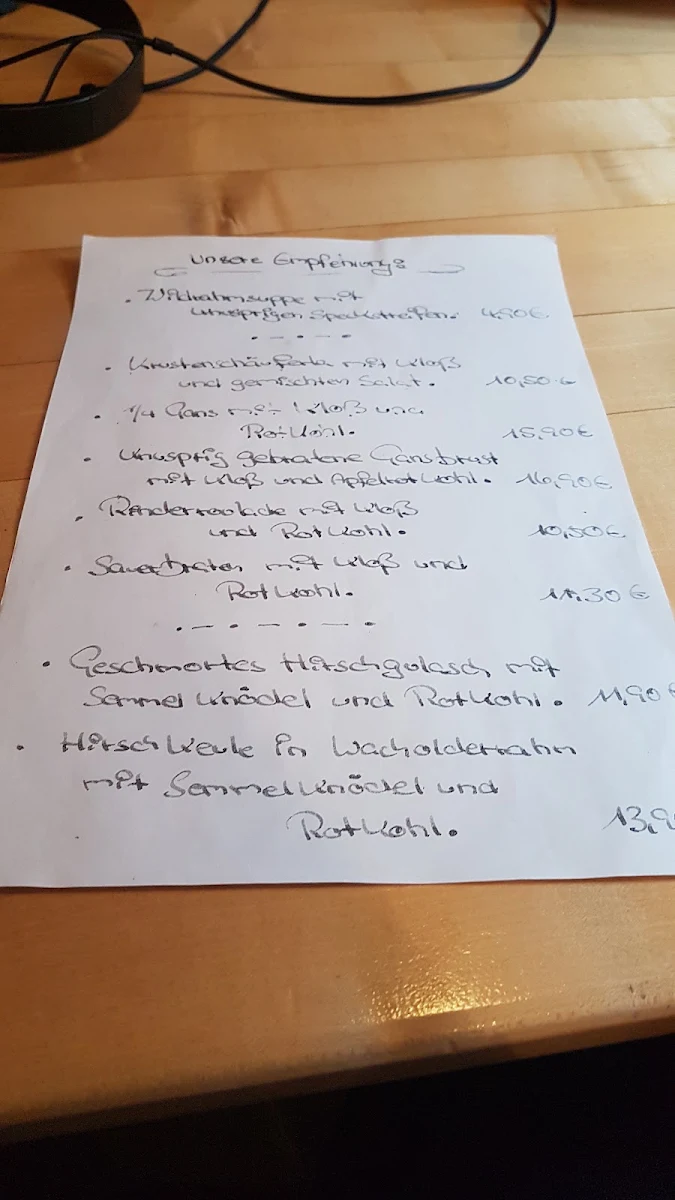 Unsere Empfehlung:
. Wildrahmsuppe mit
knusprigen Speckstreifen. 4,90€
. - . - . - .
. Krustenschäuferla mit Kloß
und gemischten Salat. 10,50 €
. 1/4 Gans mit Kloß und
Rotkohl. 15,90€
. Knusprig gebratene Gänsbrust
mit Kloß und Apfelrotkohl. 16,90€
. Rinderroulade mit Kloß
und Rotkohl. 10,50€
. Sauerbraten mit Kloß und
Rotkohl. 11,30 €
. - . - . - .
. Geschmortes Hirschgulasch mit
Semmelknödel und Rotkohl. 11,90 €
. Hirschkeule in Wacholderrahm
mit Semmelknödel und
Rotkohl. 13,9